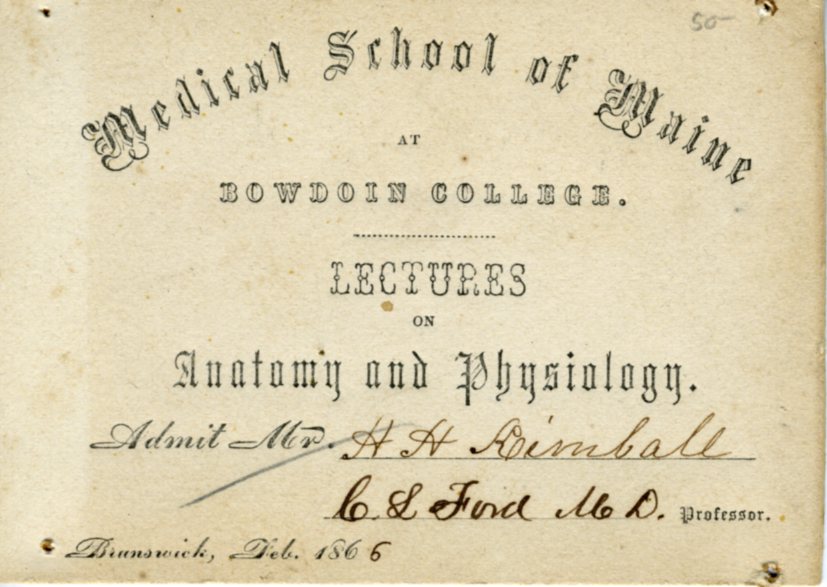 50-
Medical School of Maine
AT
BOWDOIN COLLEGE.
LECTURES
ON
Anatomy and Physiology.
Admit Mr. H H Kimball
C. L Ford M D. Professor.
Brunswick, Feb. 1866